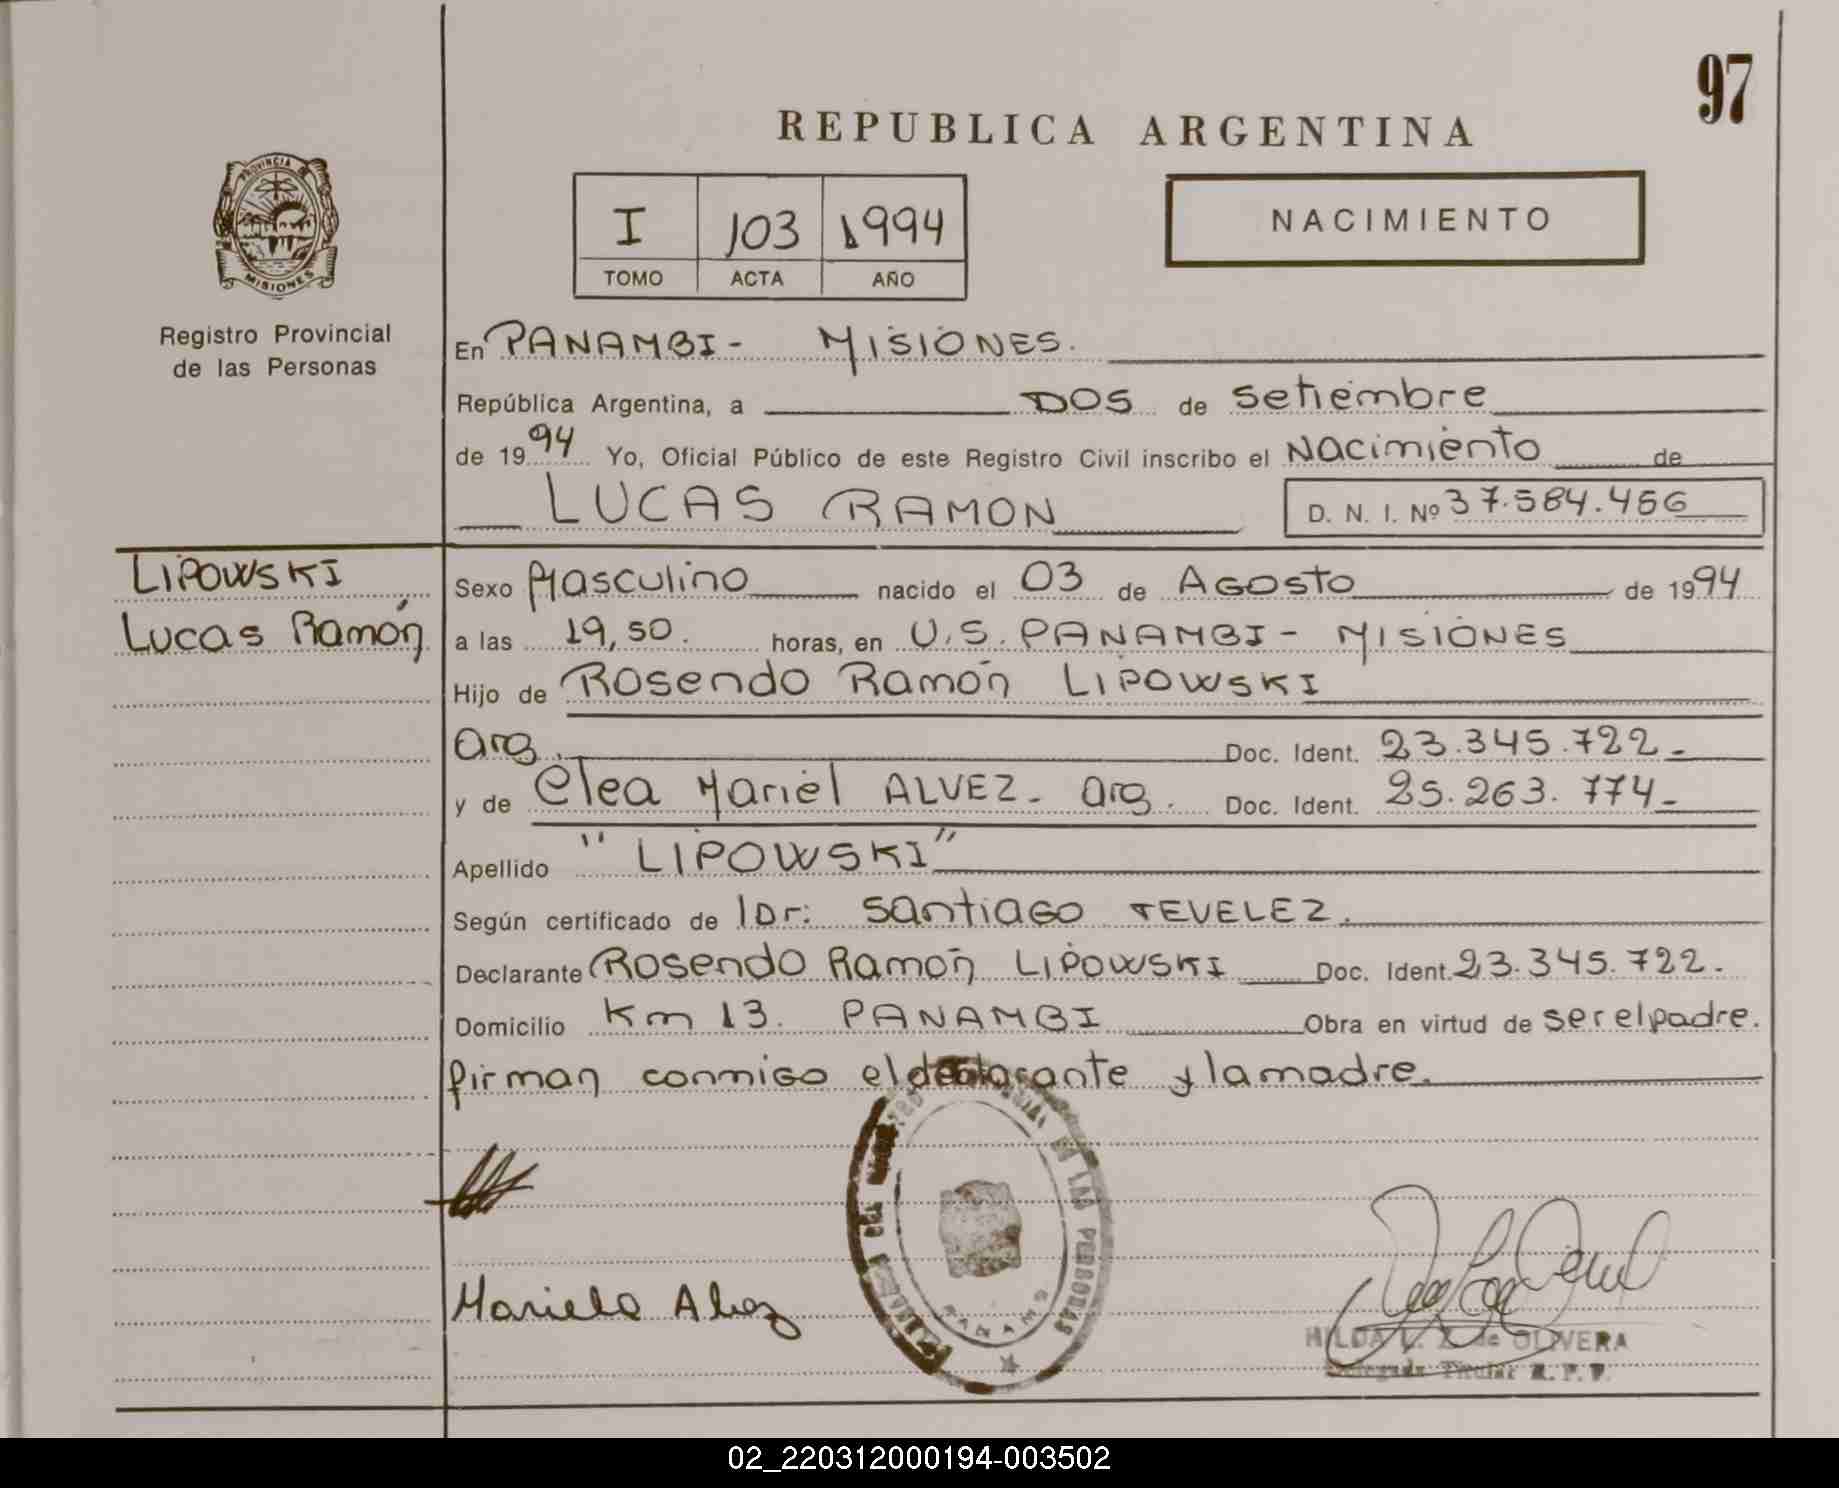 97
REPUBLICA ARGENTINA
PROVINCIA DE
MISIONES
Registro Provincial
de las Personas
I 103 1994
TOMO ACTA AÑO
NACIMIENTO
En PANAMBI- MISIONES.
República Argentina, a DOS de Setiembre
de 1994 Yo, Oficial Público de este Registro Civil inscribo el Nacimiento de
LUCAS RAMON D. N. I. Nº 37.584.456
LIPOWSKI
Lucas Ramón
Sexo Masculino nacido el 03 de AGOSTO de 1994
a las 19,50. horas, en U.S. PANAMBI- MISIONES
Hijo de Rosendo Ramón LIPOWSKI
arg. Doc. Ident. 23.345.722.-
y de Clea Mariel ALVEZ- arg. Doc. Ident. 25.263.774-
Apellido "LIPOWSKI"
Según certificado de Dr: Santiago TEVELEZ.
Declarante Rosendo Ramón LIPOWSKI Doc. Ident. 23.345.722.
Domicilio Km 13. PANAMBI Obra en virtud de ser el padre.
firman conmigo el declarante y la madre.
DE LAS PERSONAS
PANAMB
Mariela Alvez
HILDA L. Z. de OLIVERA
Delegada Titular R. P. P.
02_220312000194-003502